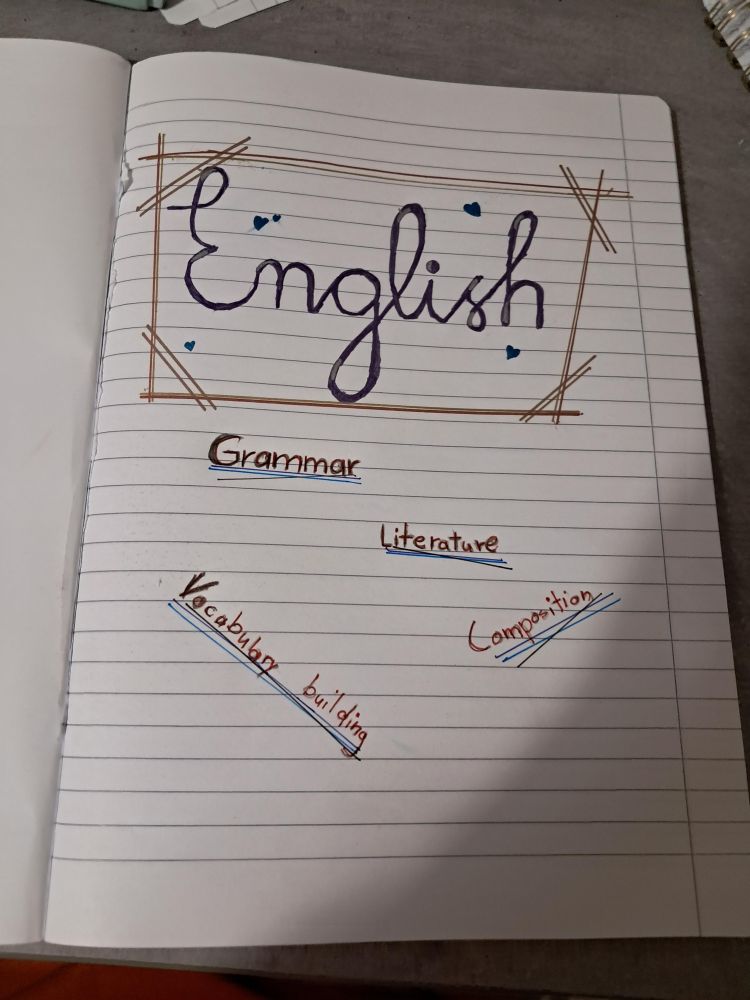 English
Grammar
Literature
Vocabulary building
Composition